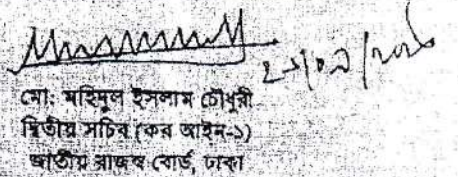 মো: মহিদুল ইসলাম চৌধুরী
দ্বিতীয় সচিব (কর আইন-১)
জাতীয় রাজস্ব বোর্ড, ঢাকা